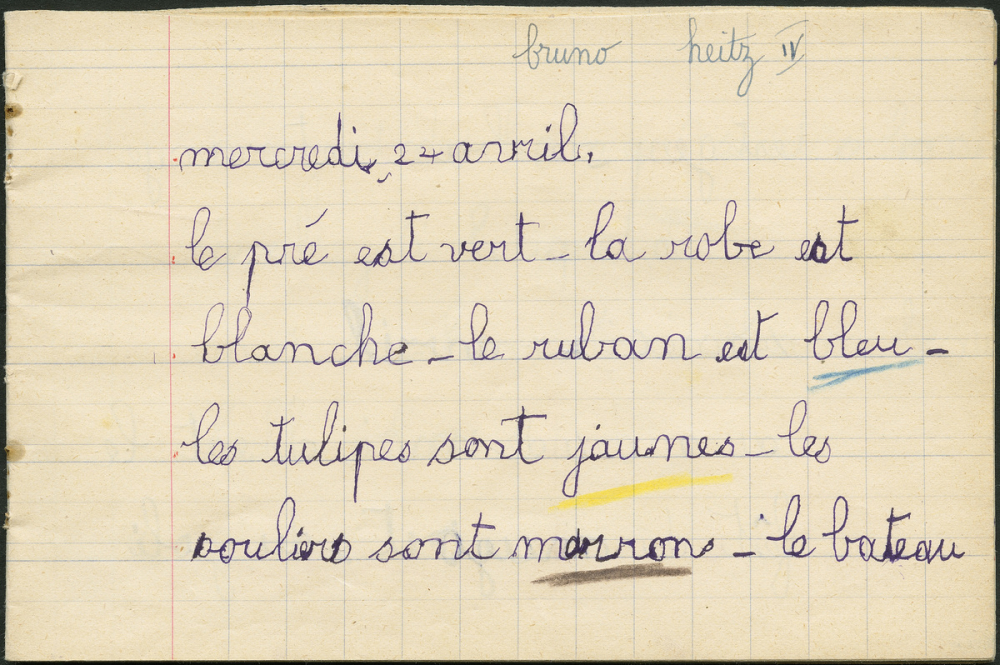 bruno heitz IV
mercredi, 24 avril,
le pré est vert - la robe est
blanche - le ruban est bleu -
les tulipes sont jaunes - les
souliers sont marron - le bateau